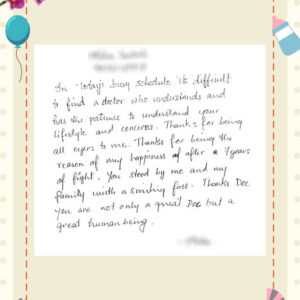 In today's busy schedule its difficult
to find a doctor who understands and
has the patience to understand your
lifestyle and concerns. Thanks for being
all eyers to me. Thanks for being the
reason of my happiness of after a 7 years
of fight. You stood by me and my
family with a smiling face. Thanks Doc
you are not only a great Doc but a
great human being.